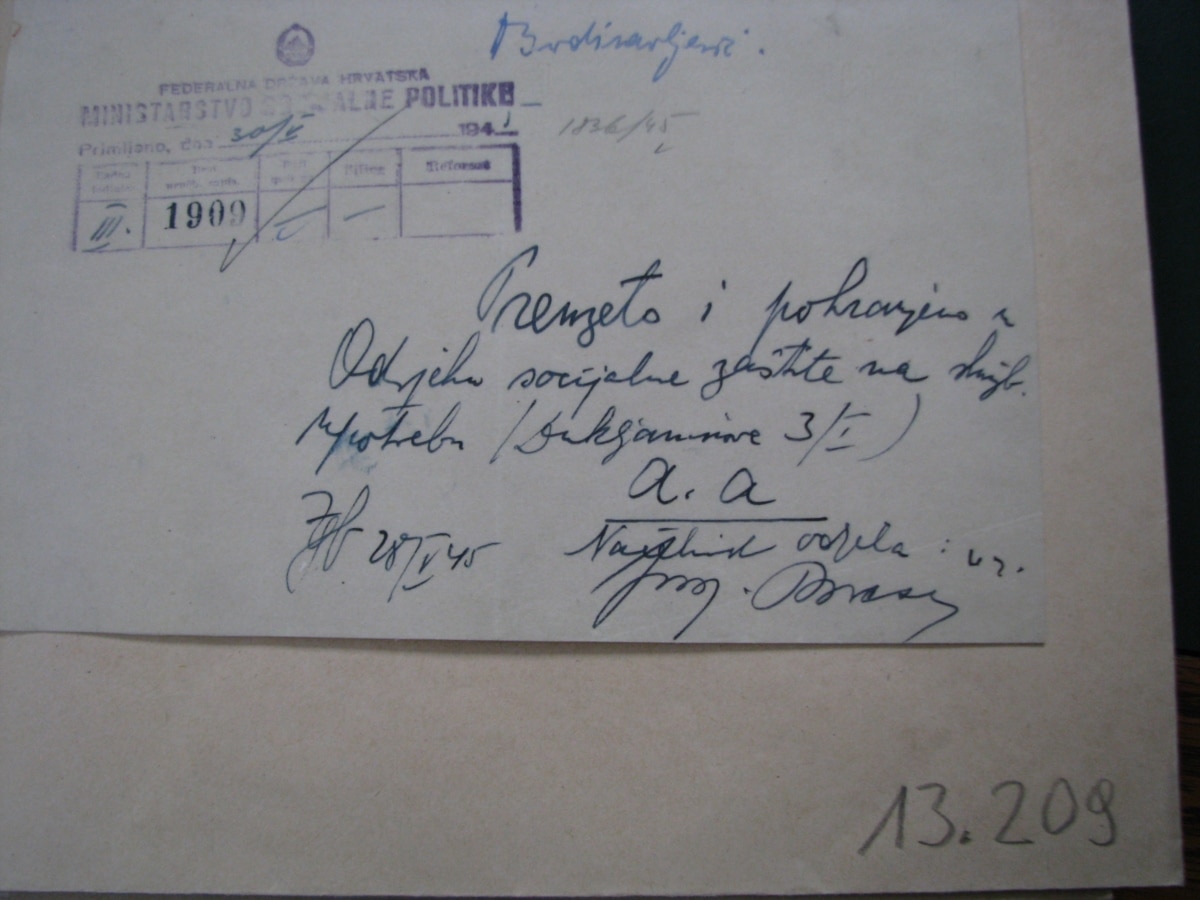 Budisavljević.
FEDERALNA DRŽAVA HRVATSKA
MINISTARSTVO SOCIJALNE POLITIKE
Primljeno, dan 30/V 194
1836/45
Prilog Referent
III. 1909 — —
Preuzeto i pohranjeno u
Odjelu socijalne zaštite na služb.
upotrebu ( 3/I)
a. a
Zgb 28/V 45 Načelnik odjela : vz.
13.209